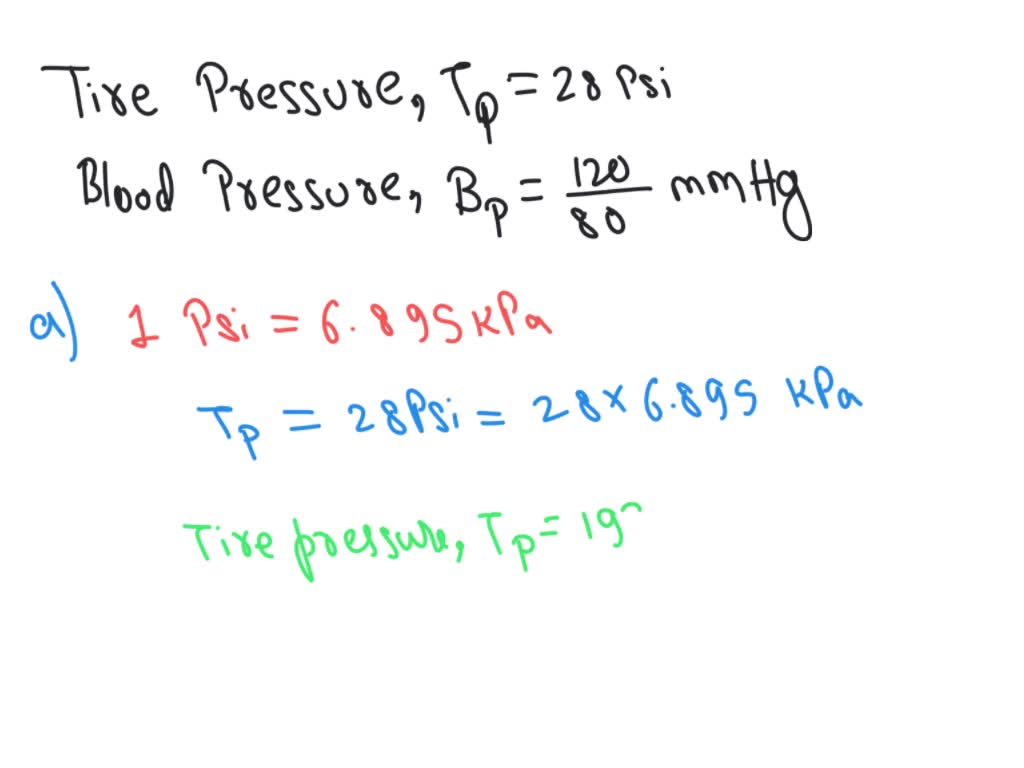 Tire Pressure, Tp = 28 Psi
Blood Pressure, Bp = 120/80 mmHg
a) 1 Psi = 6.895 kPa
Tp = 28Psi = 28 x 6.895 kPa
Tire pressure, Tp = 19